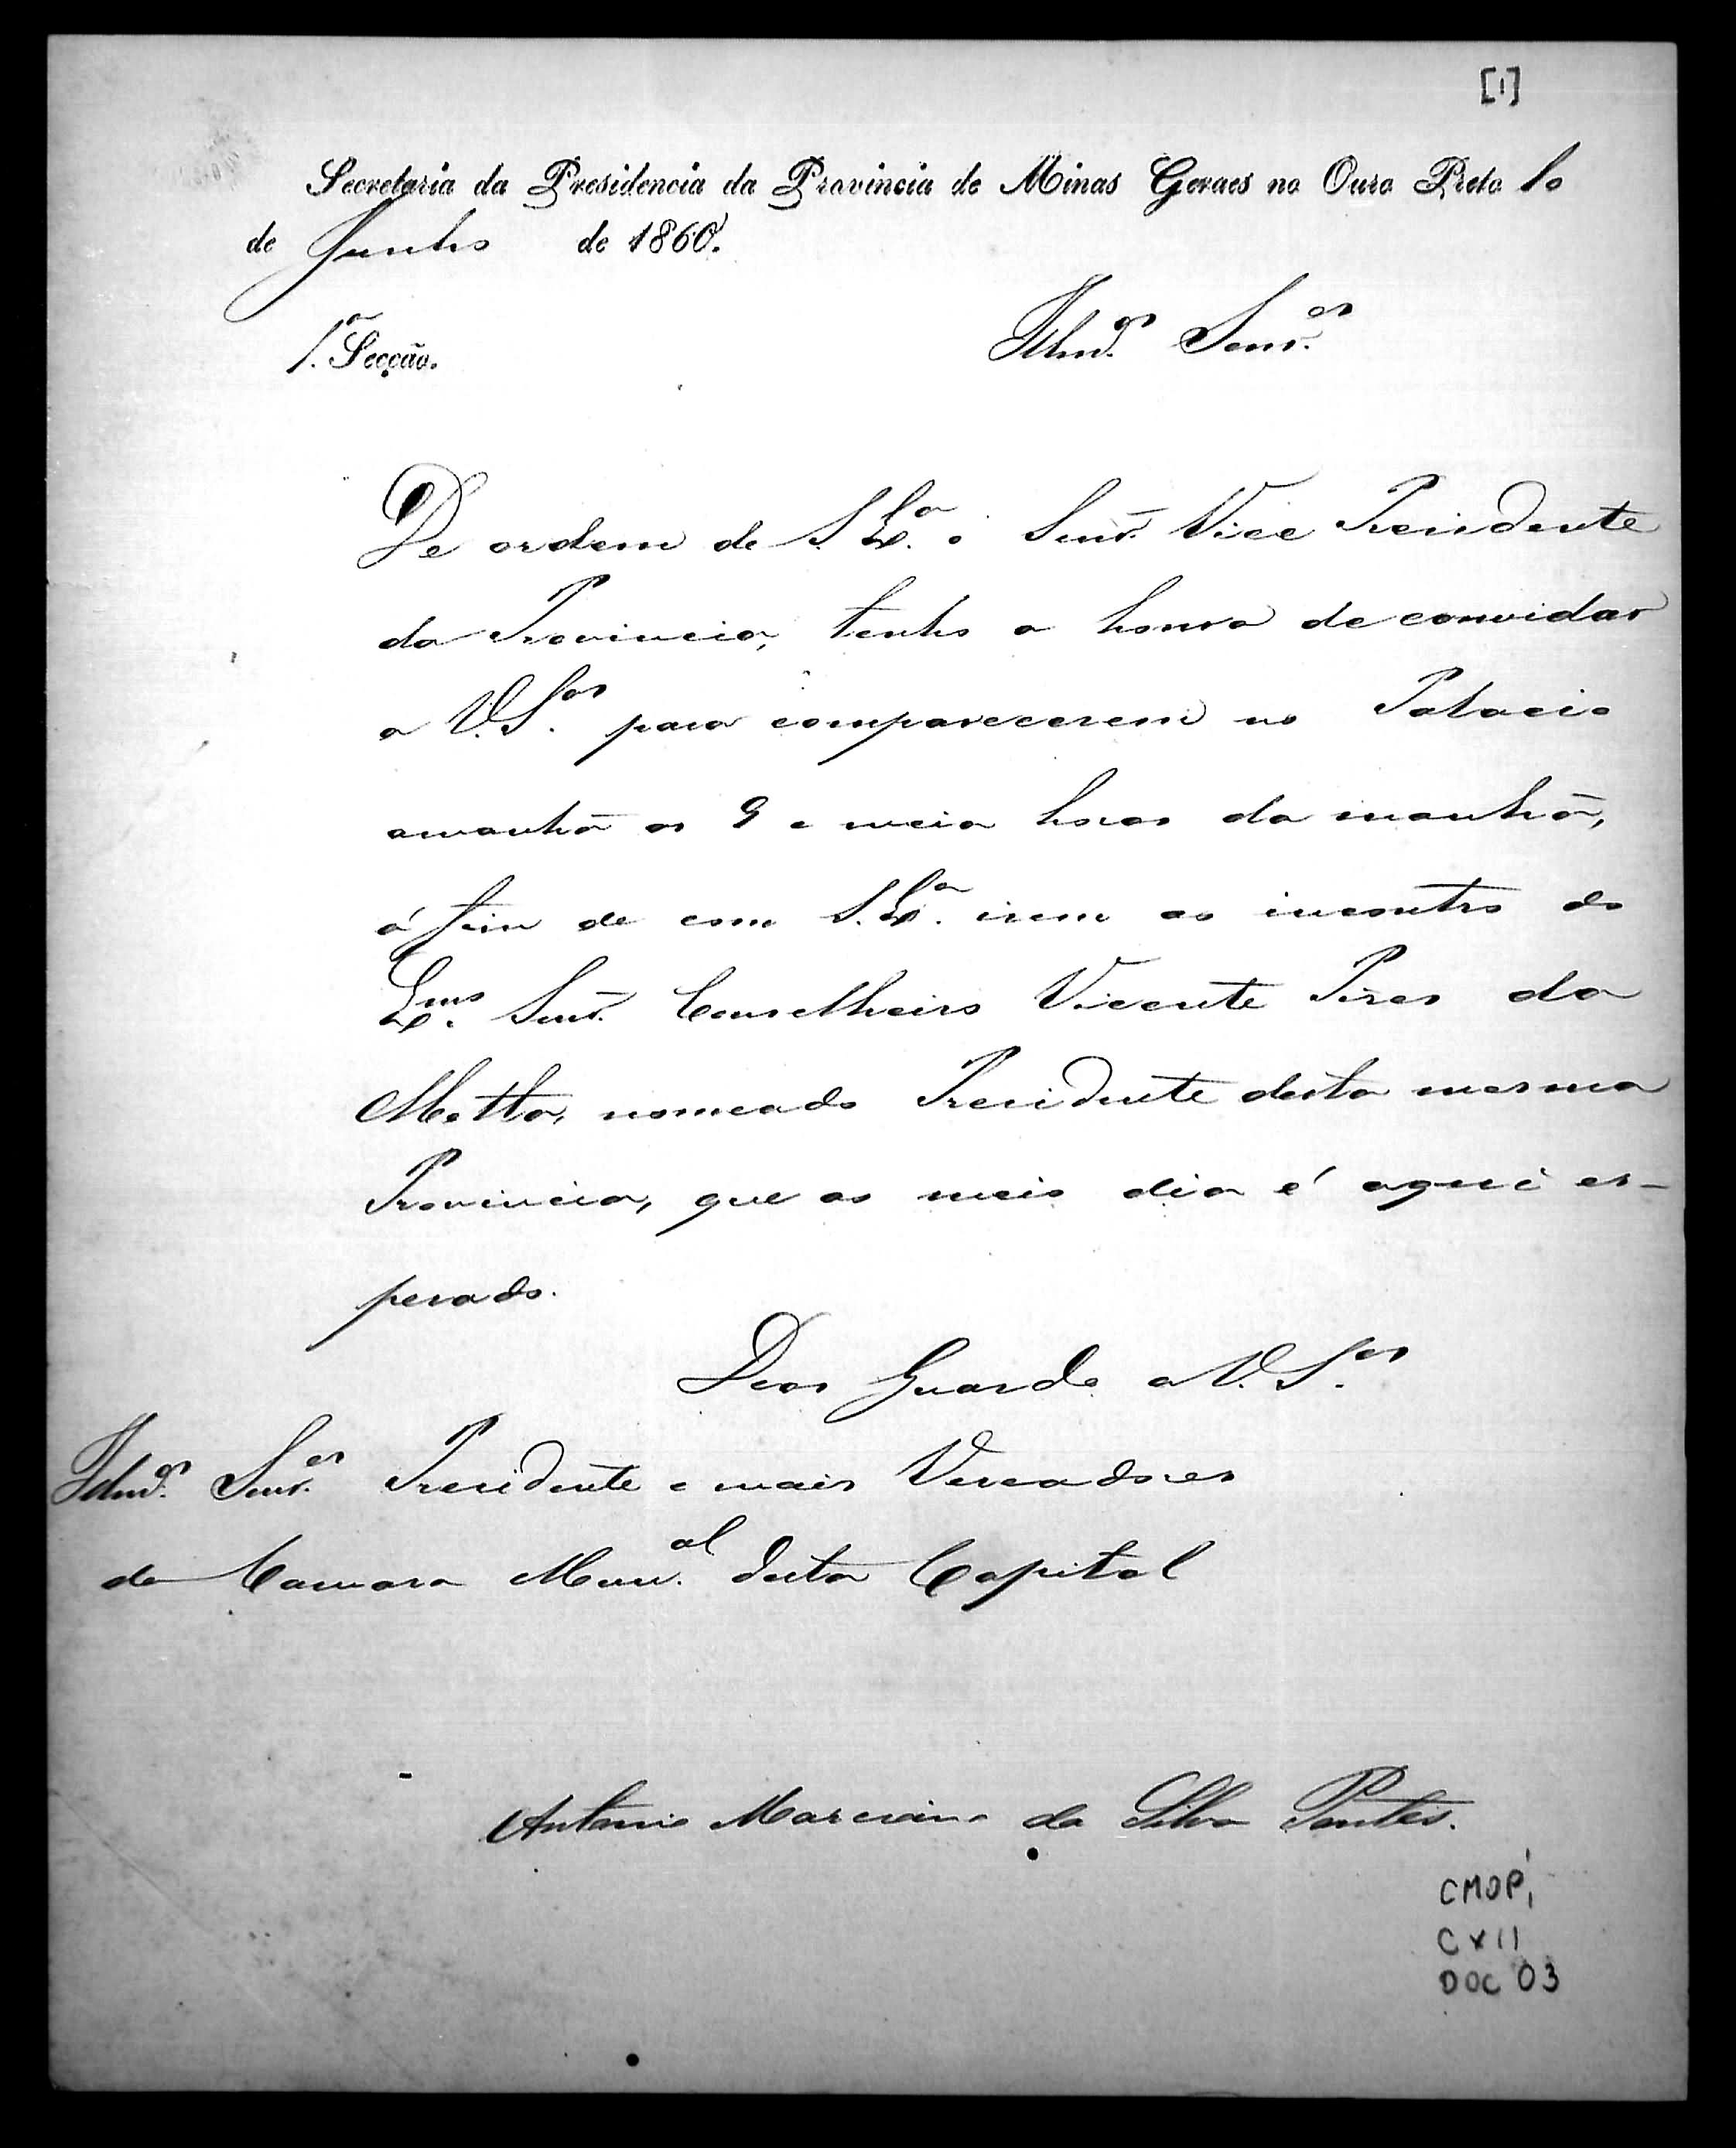 [1]
Secretaria da Presidencia da Provincia de Minas Geraes no Ouro Preto 1o
de Junho de 1860.
1.ª Secção.
Illm.os Senr.es
De ordem de S. Ex.a o Senr. Vice Presidente
da Provincia, tenho a honra de convidar
a V. S.as para comparecerem no Palacio
amanhã as 9 e meia horas da manhã,
á fim de com S. Ex.a irem ao incontro do
Ex.mo Senr. Conselheiro Vicente Pires da
Motta, nomeado Presidente desta mesma
Provincia, que ao meio dia é aqui es-
perado.
Deos Guarde a V. S.as
Illm.os Senr.es Presidente e mais Vereadores
da Camara Mun.al desta Capital
Antonio Marciano da Silva Pontes.
CMOP,
CX 11
DOC 03